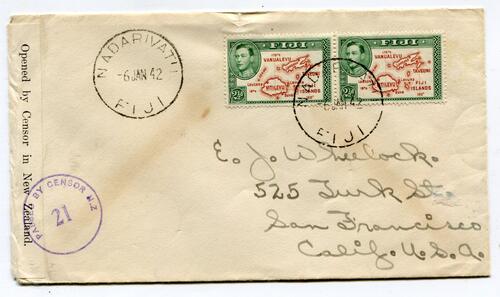 Opened by Censor in New Zealand.
PASSED BY CENSOR N.Z
21
NADARIVATU
-6 JAN 42
FIJI
FIJI
VANUALEVU
TAVEUNI
VITILEVU
FIJI
ISLANDS
2½d
FIJI
VANUALEVU
TAVEUNI
VITILEVU
FIJI
ISLANDS
2½d
NADARIVATU
-6 JAN 42
FIJI
E. J. Wheelock.
525 Turk St.
San Francisco
Calif. U.S.A.